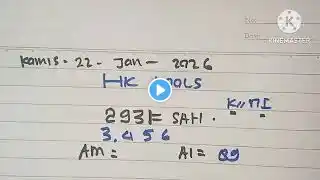 No:
Date:
KINEMASTER
Kamis - 22 - Jan - 2026
HK POOLS
2931 = SAH .
K // MI
3. 4 5 6
AM = AI = 89